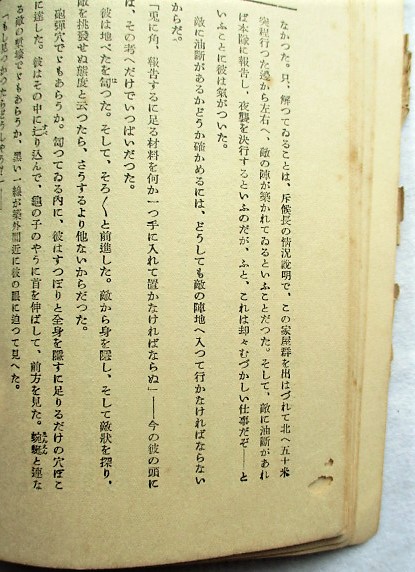 なかつた。只、解つてゐることは、斥候長の情況說明で、この家屋群を出はづれて北へ五十米
突程行つた邊から左右へ、敵の陣が築かれてゐるといふことだつた。そして、敵に油斷があれ
ば本隊に報告し、夜襲を決行するといふのだが、ふと、これは却々むづかしい仕事だぞ――と
いふことに彼は氣がついた。
敵に油斷があるかどうか確かめるには、どうしても敵の陣地へ入つて行かなければならない
からだ。
「兎に角、報告するに足る材料を何か一つ手に入れて置かなければならぬ」――今の彼の頭に
は、その考へだけでいつぱいだつた。
彼は地べたを匐つた。そして、そろ〱と前進した。敵から身を隱し、そして敵狀を探り、
敵を挑發せぬ態度と云つたら、さうするより他ないからだつた。
砲彈穴でゞもあらうか。匐つてゐる内に、彼はすつぽりと全身を隱すに足りるだけの穴ぼこ
に達した。彼はその中に辷り込んで、龜の子のやうに首を伸ばして、前方を見た。蜿蜒と連な
る敵の塹壕でゞもあらうか、黑い一線が案外間近に彼の眼に迫つて見へた。
「もし見つかつたらどう